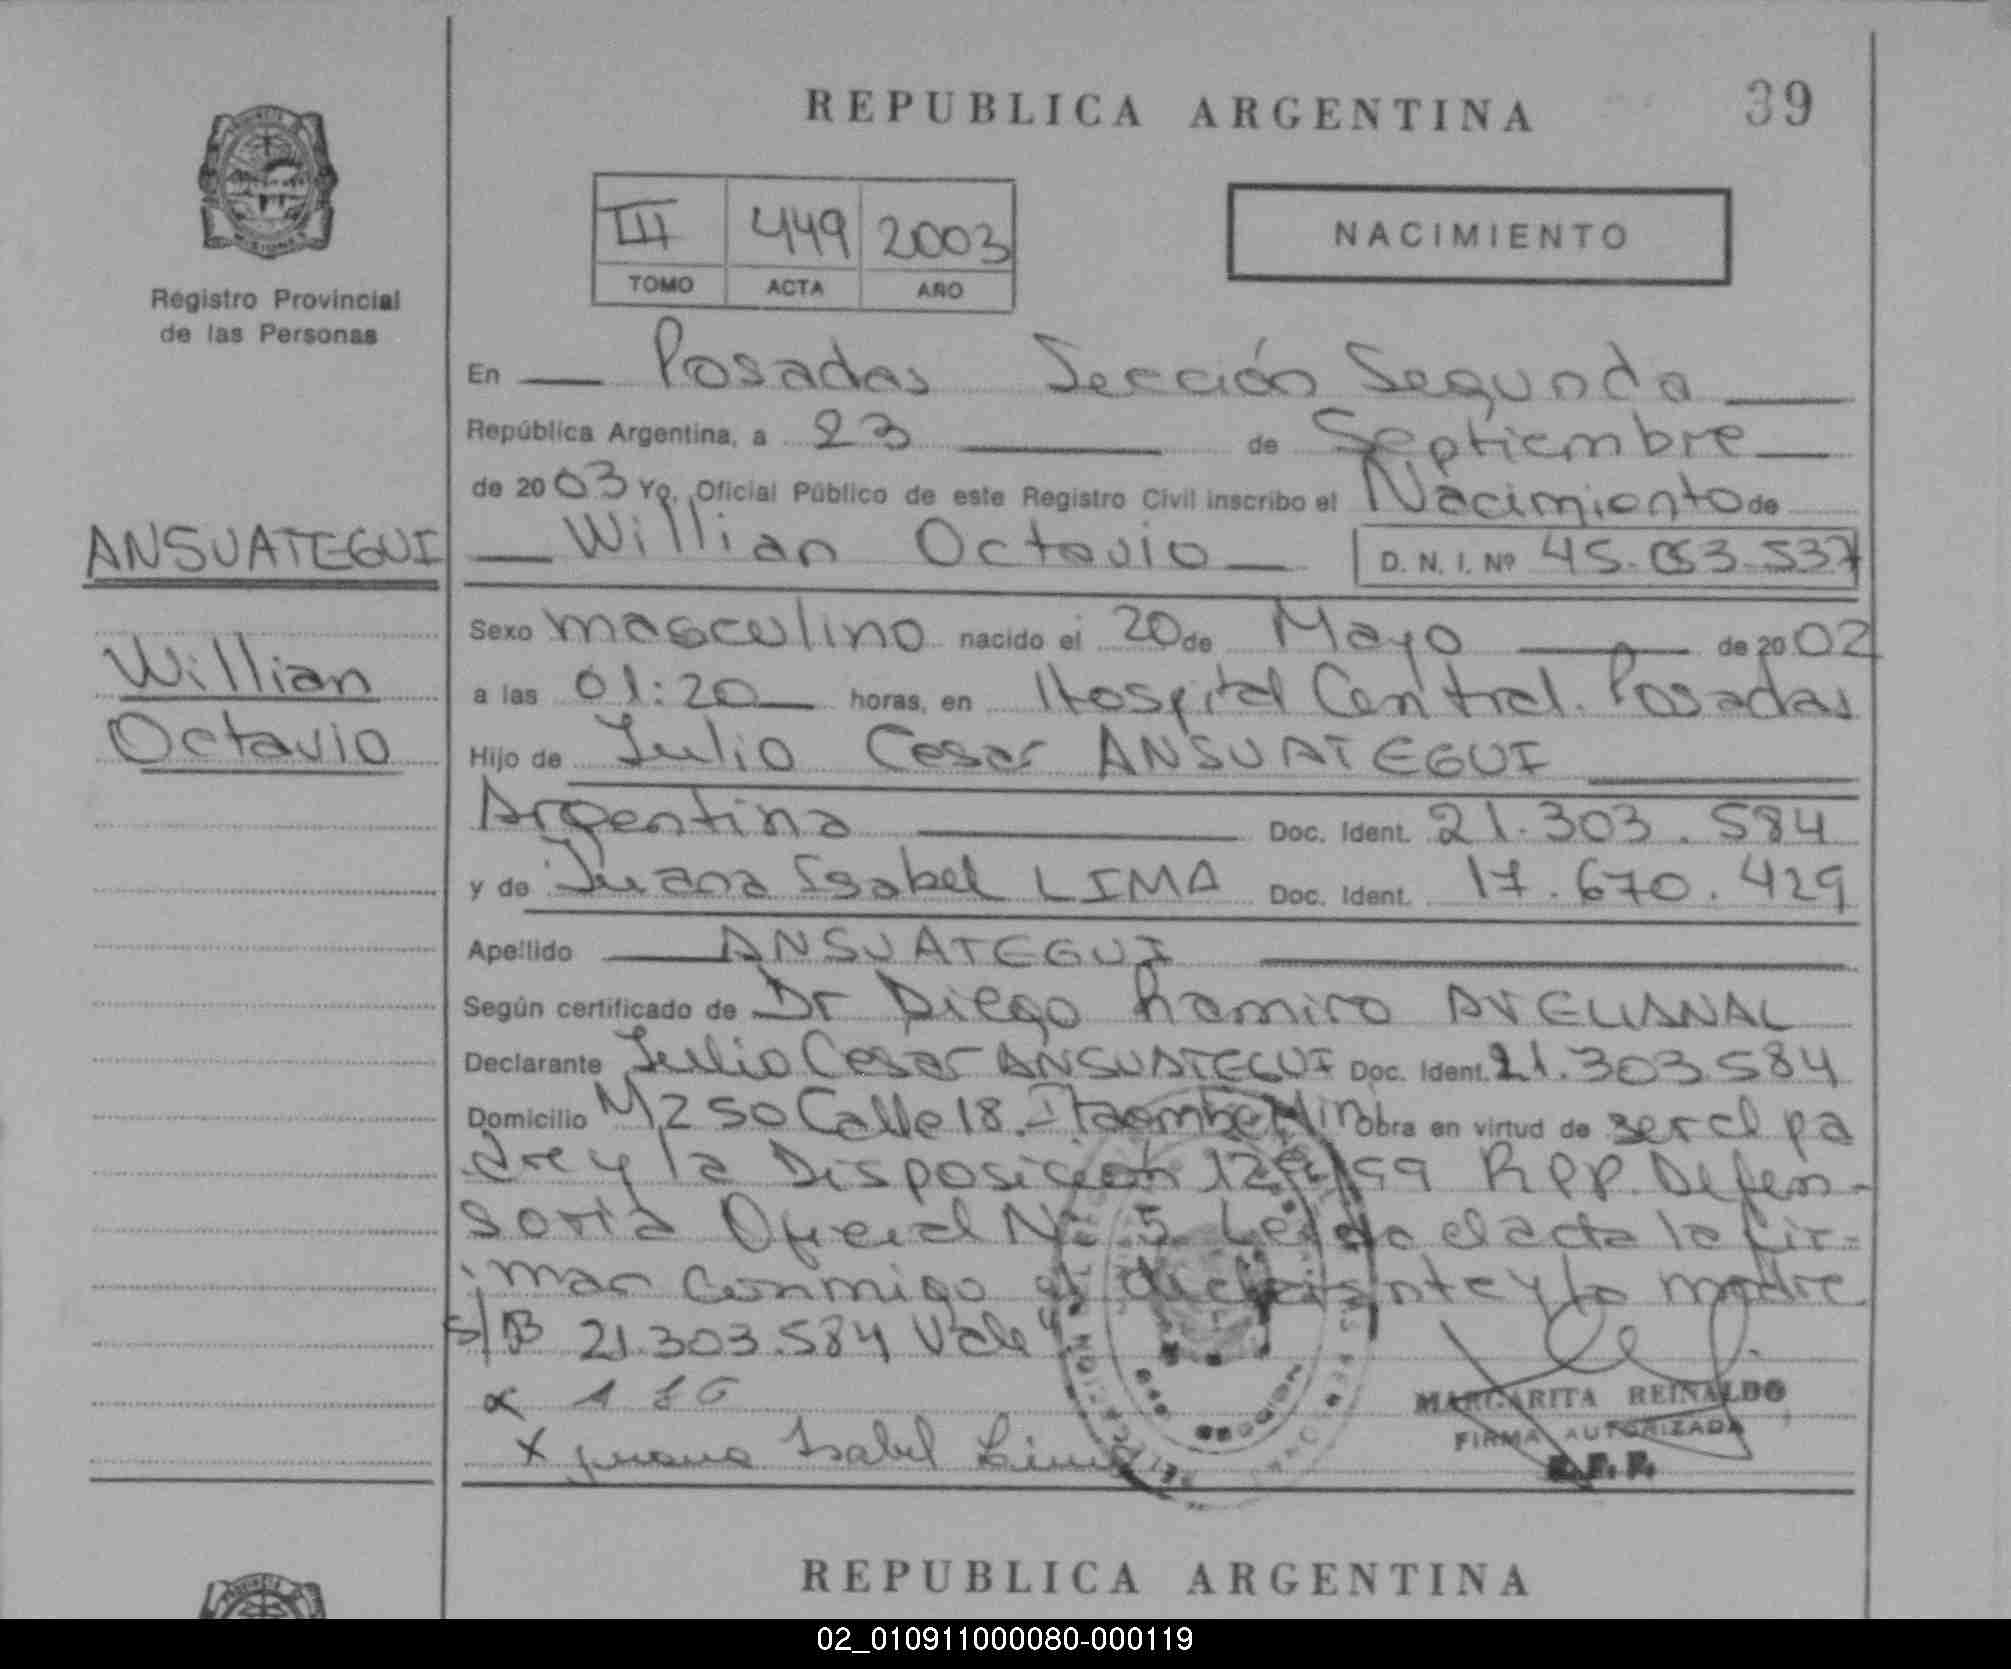 REPUBLICA ARGENTINA
39
III 449 2003
TOMO ACTA AÑO
NACIMIENTO
Registro Provincial
de las Personas
En Posadas Sección Segunda
República Argentina, a 23 de Septiembre
de 2003 Yo, Oficial Público de este Registro Civil inscribo el Nacimiento de
ANSUATEGUI
Willian Octavio D. N. I. Nº 45.053.537
Sexo masculino nacido el 20 de Mayo de 2002
Willian
a las 01:20 horas, en Hospital Central. Posadas
Octavio
Hijo de Julio Cesar ANSUATEGUI
Argentina Doc. Ident. 21.303.584
y de Juana Isabel LIMA Doc. Ident. 17.670.429
Apellido ANSUATEGUI
Según certificado de Dr Diego Ramiro AVELLANAL
Declarante Julio Cesar ANSUATEGUI Doc. Ident. 21.303.584
Domicilio Mz 50 Calle 18. Itaembe Mini Obra en virtud de ser el pa
dre y la Disposición /99 RPP. Defen-
soria Oficial Nº 5. Leida el acta la fir-
mar conmigo el declarante y la madre
s/B 21.303.584 Vale
x
x Juana Isabel Lima
MARGARITA REINALDO
FIRMA AUTORIZADA
R.P.P.
REPUBLICA ARGENTINA
02_010911000080-000119